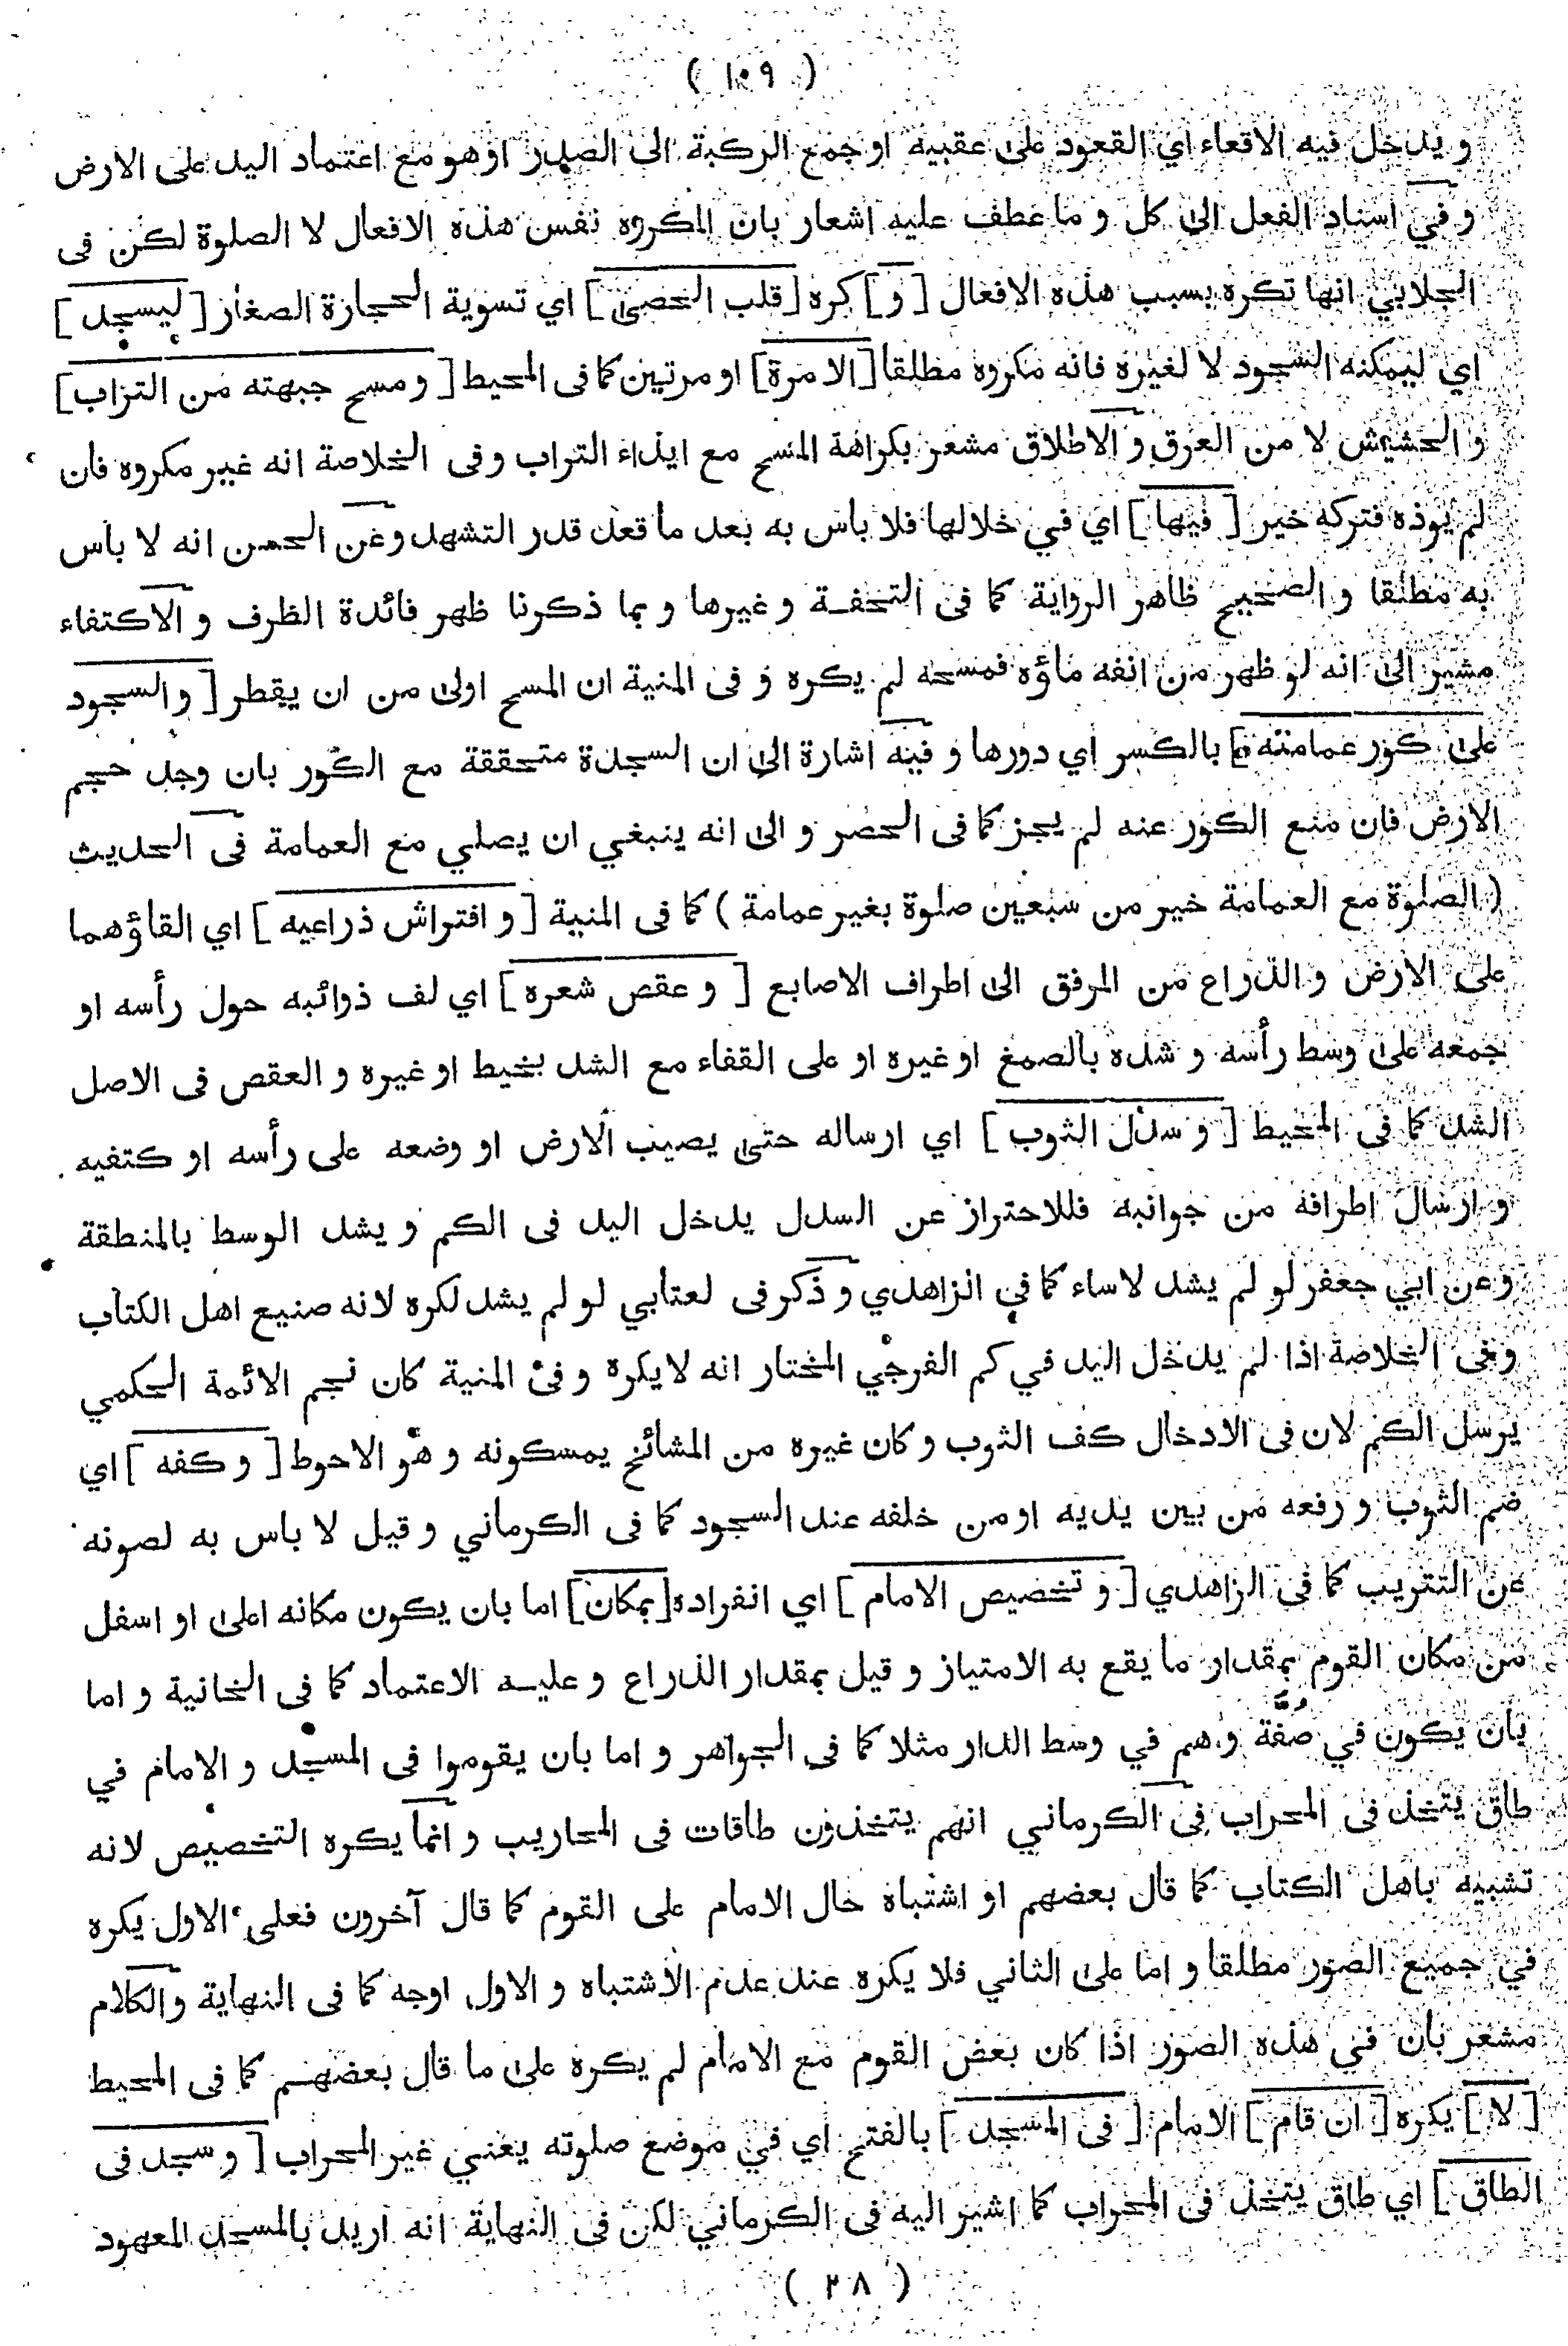 ( ١٠٩ )
و يدخل فيه الاقعاء اي القعود على عقبيه او جمع الركبة الى الصدر او هو مع اعتماد اليد على الارض
و في اسناد الفعل الى كل و ما عطف عليه اشعار بان المكروه نفس هذه الافعال لا الصلوة لكن فى
الجلابي انها تكره بسبب هذه الافعال [ و ] كره [ قلب الحصى ] اي تسوية الحجارة الصغار [ ليسجد ]
اي ليمكنه السجود لا لغيره فانه مكروه مطلقا [ الا مرة ] او مرتين كما فى المحيط [ و مسح جبهته من التراب ]
و الحشيش لا من العرق و الاطلاق مشعر بكراهة المسح مع ايذاء التراب و فى الخلاصة انه غير مكروه فان
لم يوذه فتركه خير [ فيها ] اي في خلالها فلا باس به بعد ما قعد قدر التشهد و عن الحسن انه لا باس
به مطلقا و الصحيح ظاهر الرواية كما فى التحفة و غيرها و بما ذكرنا ظهر فائدة الظرف و الاكتفاء
مشير الى انه لو ظهر من انفه ماؤه فمسحه لم يكره و فى المنية ان المسح اولى من ان يقطر [ و السجود
على كور عمامته ] بالكسر اي دورها و فيه اشارة الى ان السجدة متحققة مع الكور بان وجد حجم
الارض فان منع الكور عنه لم يجز كما فى الحصر و الى انه ينبغي ان يصلي مع العمامة فى الحديث
( الصلوة مع العمامة خير من سبعين صلوة بغير عمامة ) كما فى المنية [ و افتراش ذراعيه ] اي القاؤهما
على الارض و الذراع من المرفق الى اطراف الاصابع [ و عقص شعره ] اي لف ذوائبه حول رأسه او
جمعه على وسط رأسه و شده بالصمغ او غيره او على القفاء مع الشد بخيط او غيره و العقص فى الاصل
الشد كما فى المحيط [ و سدل الثوب ] اي ارساله حتى يصيب الارض او وضعه على رأسه او كتفيه
و ارسال اطرافه من جوانبه فللاحتراز عن السدل يدخل اليد فى الكم و يشد الوسط بالمنطقة
و عن ابي جعفر لو لم يشد لاساء كما في الزاهدي و ذكر فى لعتابي لو لم يشد لكره لانه صنيع اهل الكتاب
و فى الخلاصة اذا لم يدخل اليد في كم الفرجي المختار انه لا يكره و فى المنية كان نجم الائمة الحكمي
يرسل الكم لان فى الادخال كف الثوب و كان غيره من المشائخ يمسكونه و هو الاحوط [ و كفه ] اي
ضم الثوب و رفعه من بين يديه او من خلفه عند السجود كما فى الكرماني و قيل لا باس به لصونه
عن التتريب كما فى الزاهدي [ و تخصيص الامام ] اي انفراده [ بمكان ] اما بان يكون مكانه اعلى او اسفل
من مكان القوم بمقدار ما يقع به الامتياز و قيل بمقدار الذراع و عليه الاعتماد كما فى الخانية و اما
بان يكون في صُفَّة و هم في وسط الدار مثلا كما فى الجواهر و اما بان يقوموا فى المسجد و الامام في
طاق يتخذ فى المحراب فى الكرماني انهم يتخذون طاقات فى المحاريب و انما يكره التخصيص لانه
تشبيه باهل الكتاب كما قال بعضهم او اشتباه حال الامام على القوم كما قال آخرون فعلى الاول يكره
في جميع الصور مطلقا و اما على الثاني فلا يكره عند عدم الاشتباه و الاول اوجه كما فى النهاية و الكلام
مشعر بان في هذه الصور اذا كان بعض القوم مع الامام لم يكره على ما قال بعضهم كما فى المحيط
[ لا ] يكره [ ان قام ] الامام [ فى المسجد ] بالفتح اي في موضع صلوته يعني غير المحراب [ و سجد فى
الطاق ] اي طاق يتخذ فى المحراب كما اشير اليه فى الكرماني لكن فى النهاية انه اريد بالمسجد المعهود
( ٢٨ )